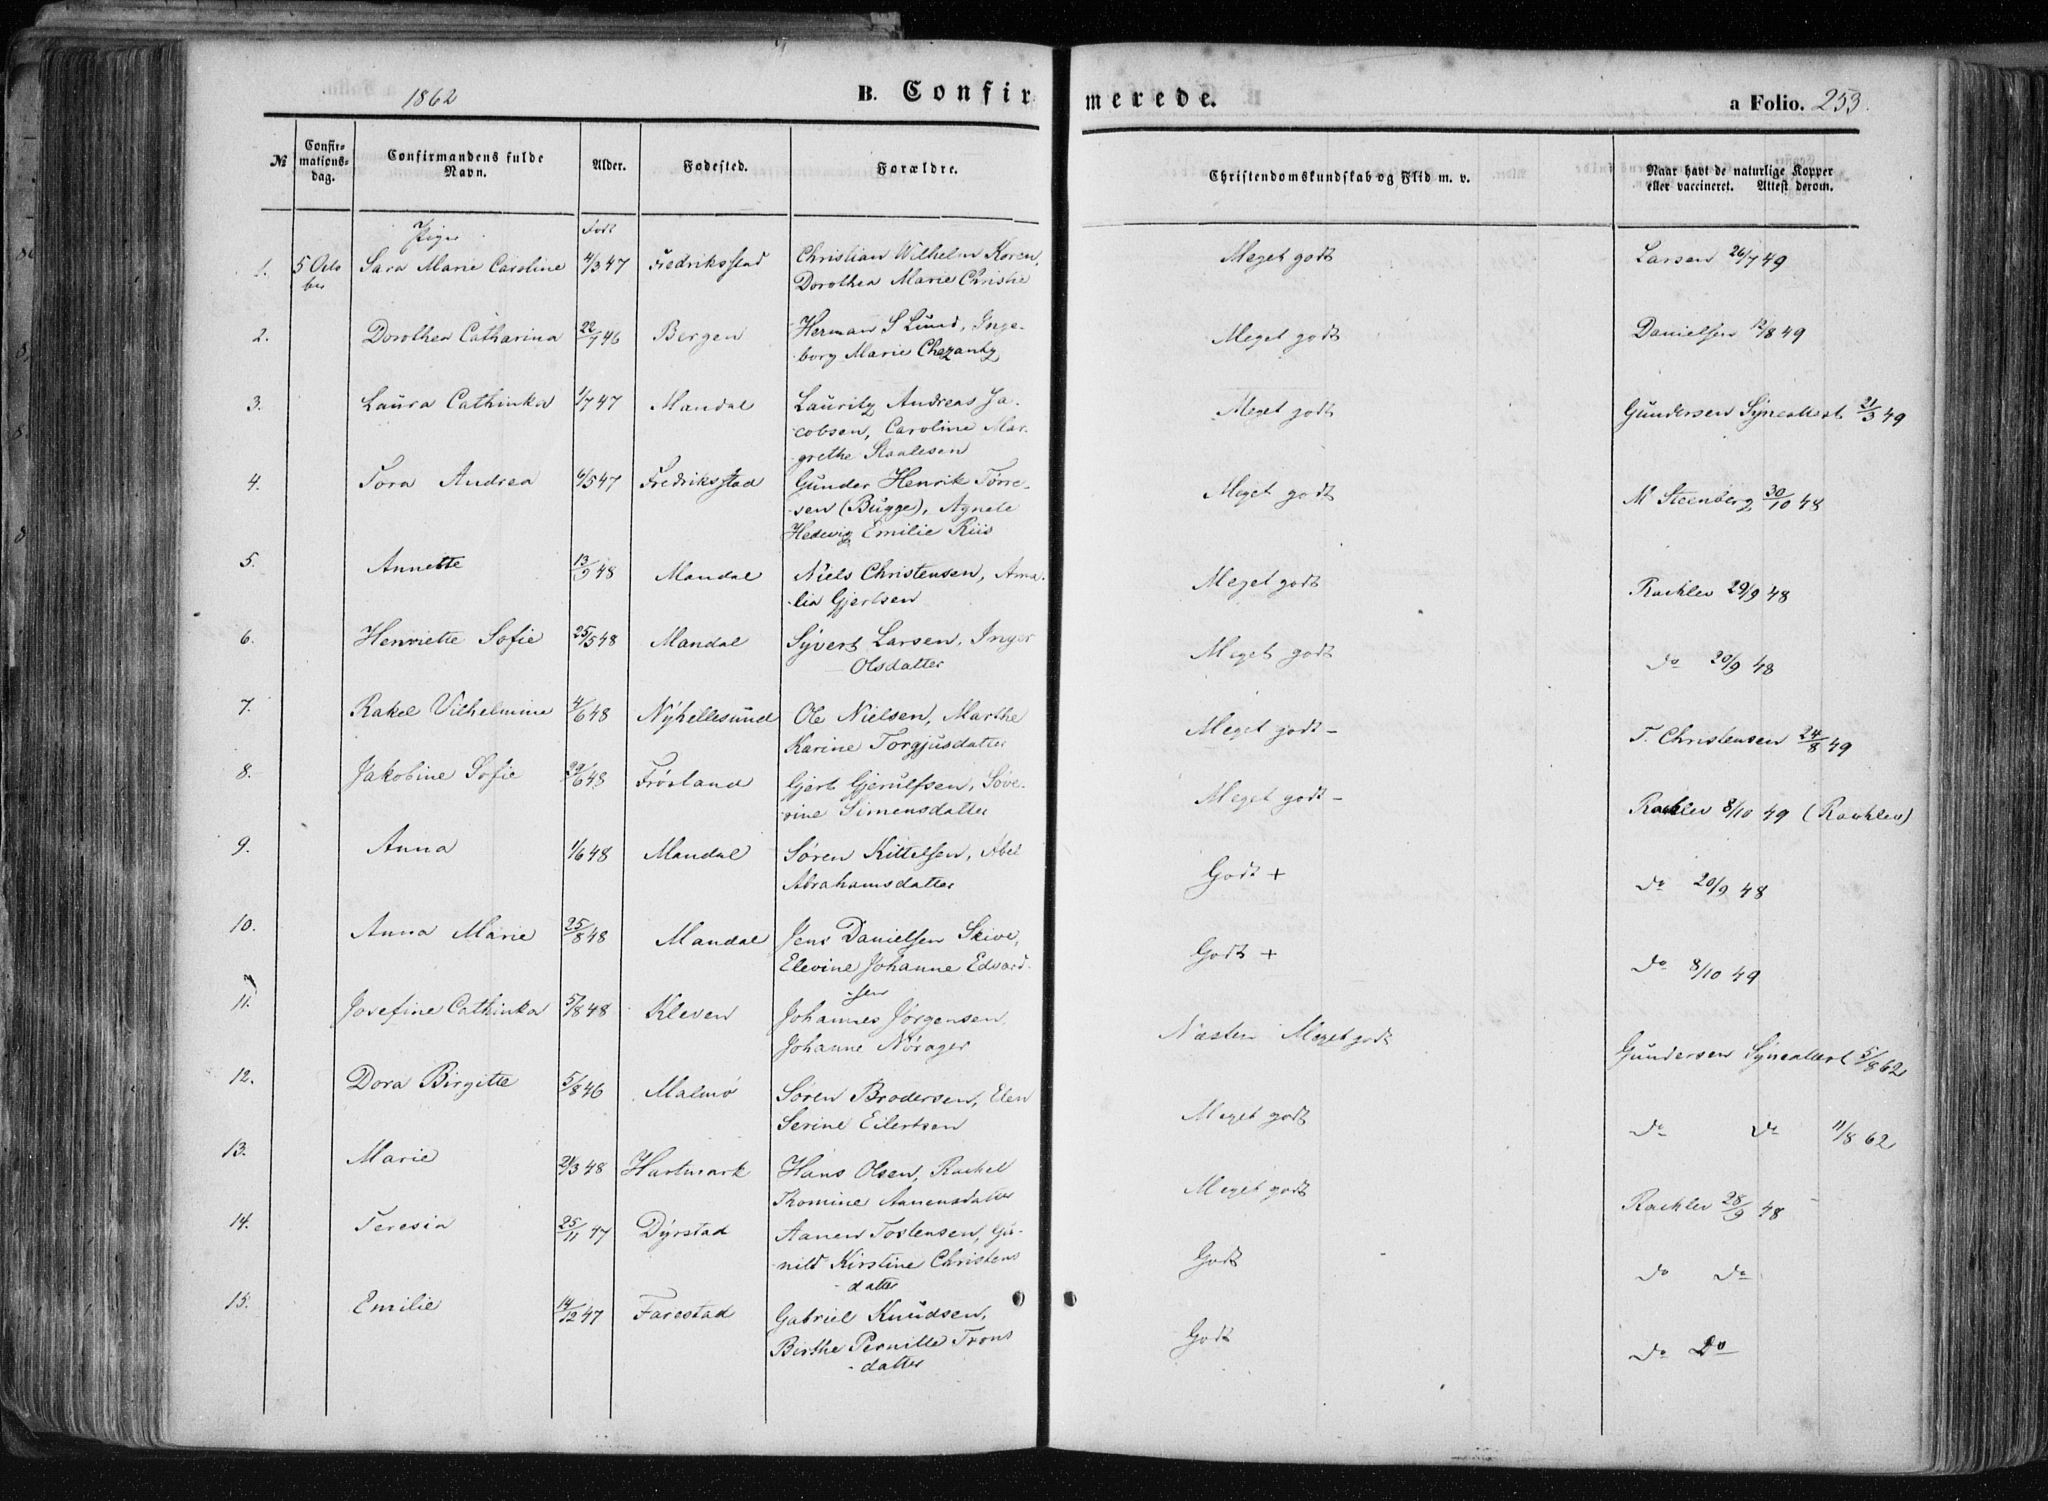 1862
B. Confirmerede.
a Folio. 253.
№
Confirmationsdag.
Confirmandens fulde Navn.
Alder.
Fødested.
Forældre.
Christendomskundskab og Flid m. v.
Naar havt de naturlige Kopper eller vaccineret. Attest derom.
Piger
Født
1. 5 Octo Sara Marie Caroline 4/3 47 Fredriksstad Christian Wilhelm Koren, Meget godt Larsen 26/7 49
ber Dorothea Marie Christie
2. Dorothea Catharina 22/7 46 Bergen Herman S Lund, Inge- Meget godt Danielsen 12/8 49
borg Marie Chezanky
3. Laura Cathinka 1/7 47 Mandal Lauritz Andreas Ja- Meget godt Gundersen 21/3 49
cobsen, Caroline Mar-
grethe Staalesen
4. Tora Andrea 6/5 47 Fredriksstad Gunder Henrik Tørre- Meget godt M Steenberg 30/10 48
-sen (Bugge), Agnete
Hedevig Emilie Riis
5. Annette 13/9 48 Mandal Niels Christensen, Ama- Meget godt Rachlev 29/9 48
-lia Gjertsen
6. Henriette Sofie 25/5 48 Mandal Syvert Larsen, Inger Meget godt Do 20/9 48
Olsdatter
7. Rakel Vilhelmine 4/6 48 Nyhellesund Ole Nielsen, Marthe Meget godt- T. Christensen 24/8 49
Karine Torgjusdatter
8. Jakobine Sofie 29/6 48 Frøsland Gjert Gjerulfsen, Seve- Meget godt- Rachlev 8/10 49 (Rachlev)
rine Simensdatter
9. Anna 1/6 48 Mandal Søren Kittelsen, Abel Godt + Do 20/9 48
Abrahamsdatter
10. Anna Marie 25/8 48 Mandal Jens Danielsen Skive, Godt + Do 8/10 49
Elevine Johanne Edvard-
-sen
11. Josefine Cathinka 5/8 48 Kleven Johannes Jørgensen, Næsten Meget godt Gundersen 5/8 62
Johanne Nørager
12. Dora Birgitte 5/8 46 Malmø Søren Brodersen, Elen Meget godt Do Do 11/8 62
Serine Eilertsen
13. Marie 21/3 48 Hartmark Hans Olsen, Rachel Meget godt Rachlev 28/9 48
Thomine Aanensdatter
14. Teresia 25/11 47 Dyrstad Aanen Tostensen, Gu- Godt Do Do
nild Kirstine Christens
-datter
15. Emilie 14/12 47 Farestad Gabriel Knudsen, Godt Do Do
Birthe Pernille Trons
-datter